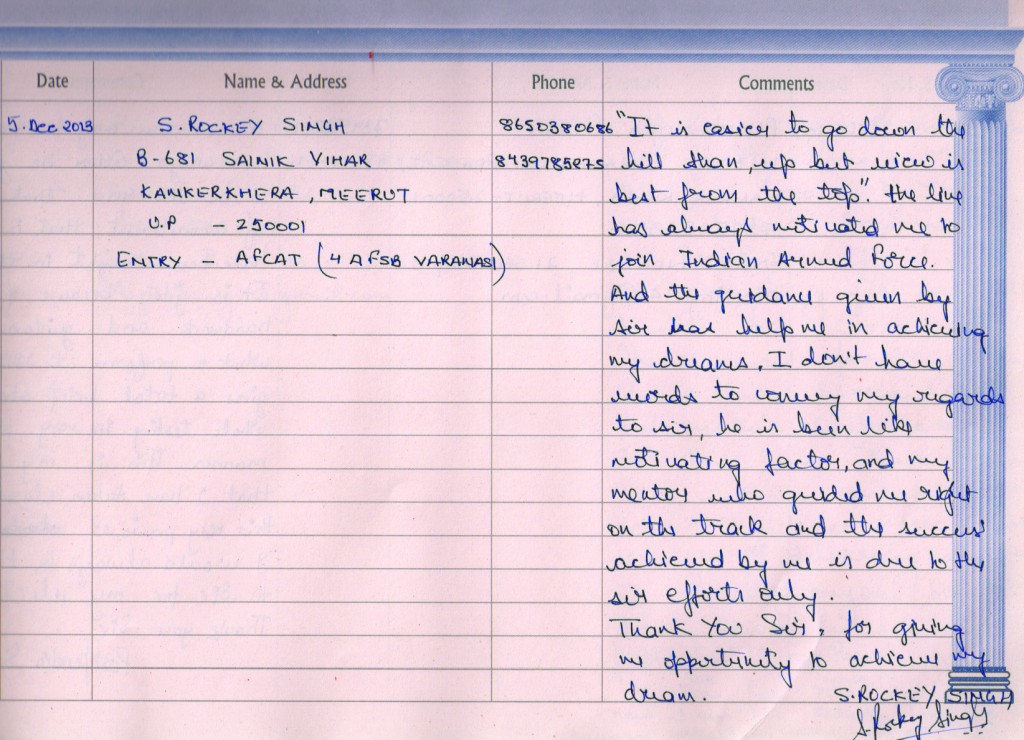 Date Name & Address Phone Comments
5. Dec 2013 S. ROCKEY SINGH 8650380686 "It is easier to go down the
B-681 SAINIK VIHAR 8439785875 hill than, up but view is
KANKERKHERA, MEERUT best from the top". the line
U.P - 250001 has always motivated me to
ENTRY - AFCAT (4 AFSB VARANASI) join Indian Armed Force.
And the guidance given by
sir has help me in achieving
my dreams. I don't have
words to convey my regards
to sir, he is been like
motivating factor, and my
mentor who guided me right
on the track and the success
achieved by me is due to the
sir efforts only.
Thank You Sir, for giving
me opportunity to achieve my
dream.
S. ROCKEY SINGH
S. Rockey Singh